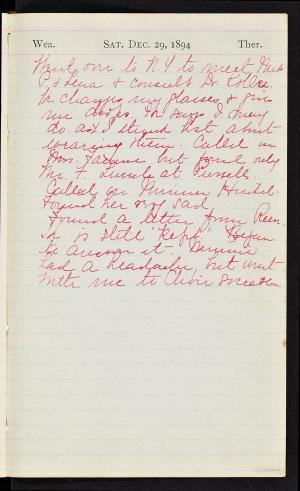 Wea. SAT. DEC. 29, 1894 Ther.
Went over to N.Y. to meet
& Lena & consult Dr. Koller.
He changes my glasses & gives
me drops. He says I may
do as I please not about
wearing them. Called on
Mrs. but found only
Mr. F. Lunch at Purssell's.
Called on Minnie
Found her very sad.
Found a letter from
He is still "kept". Began
to answer it. Minnie
had a headache, but went
with me to Choir